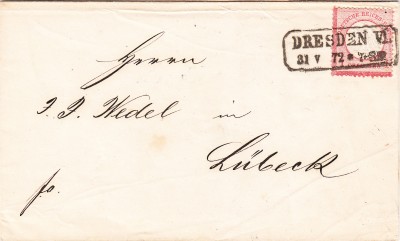 DRESDEN VI.
31 V 72
Herrn
J. J. Wedel in
Lübeck
fo.